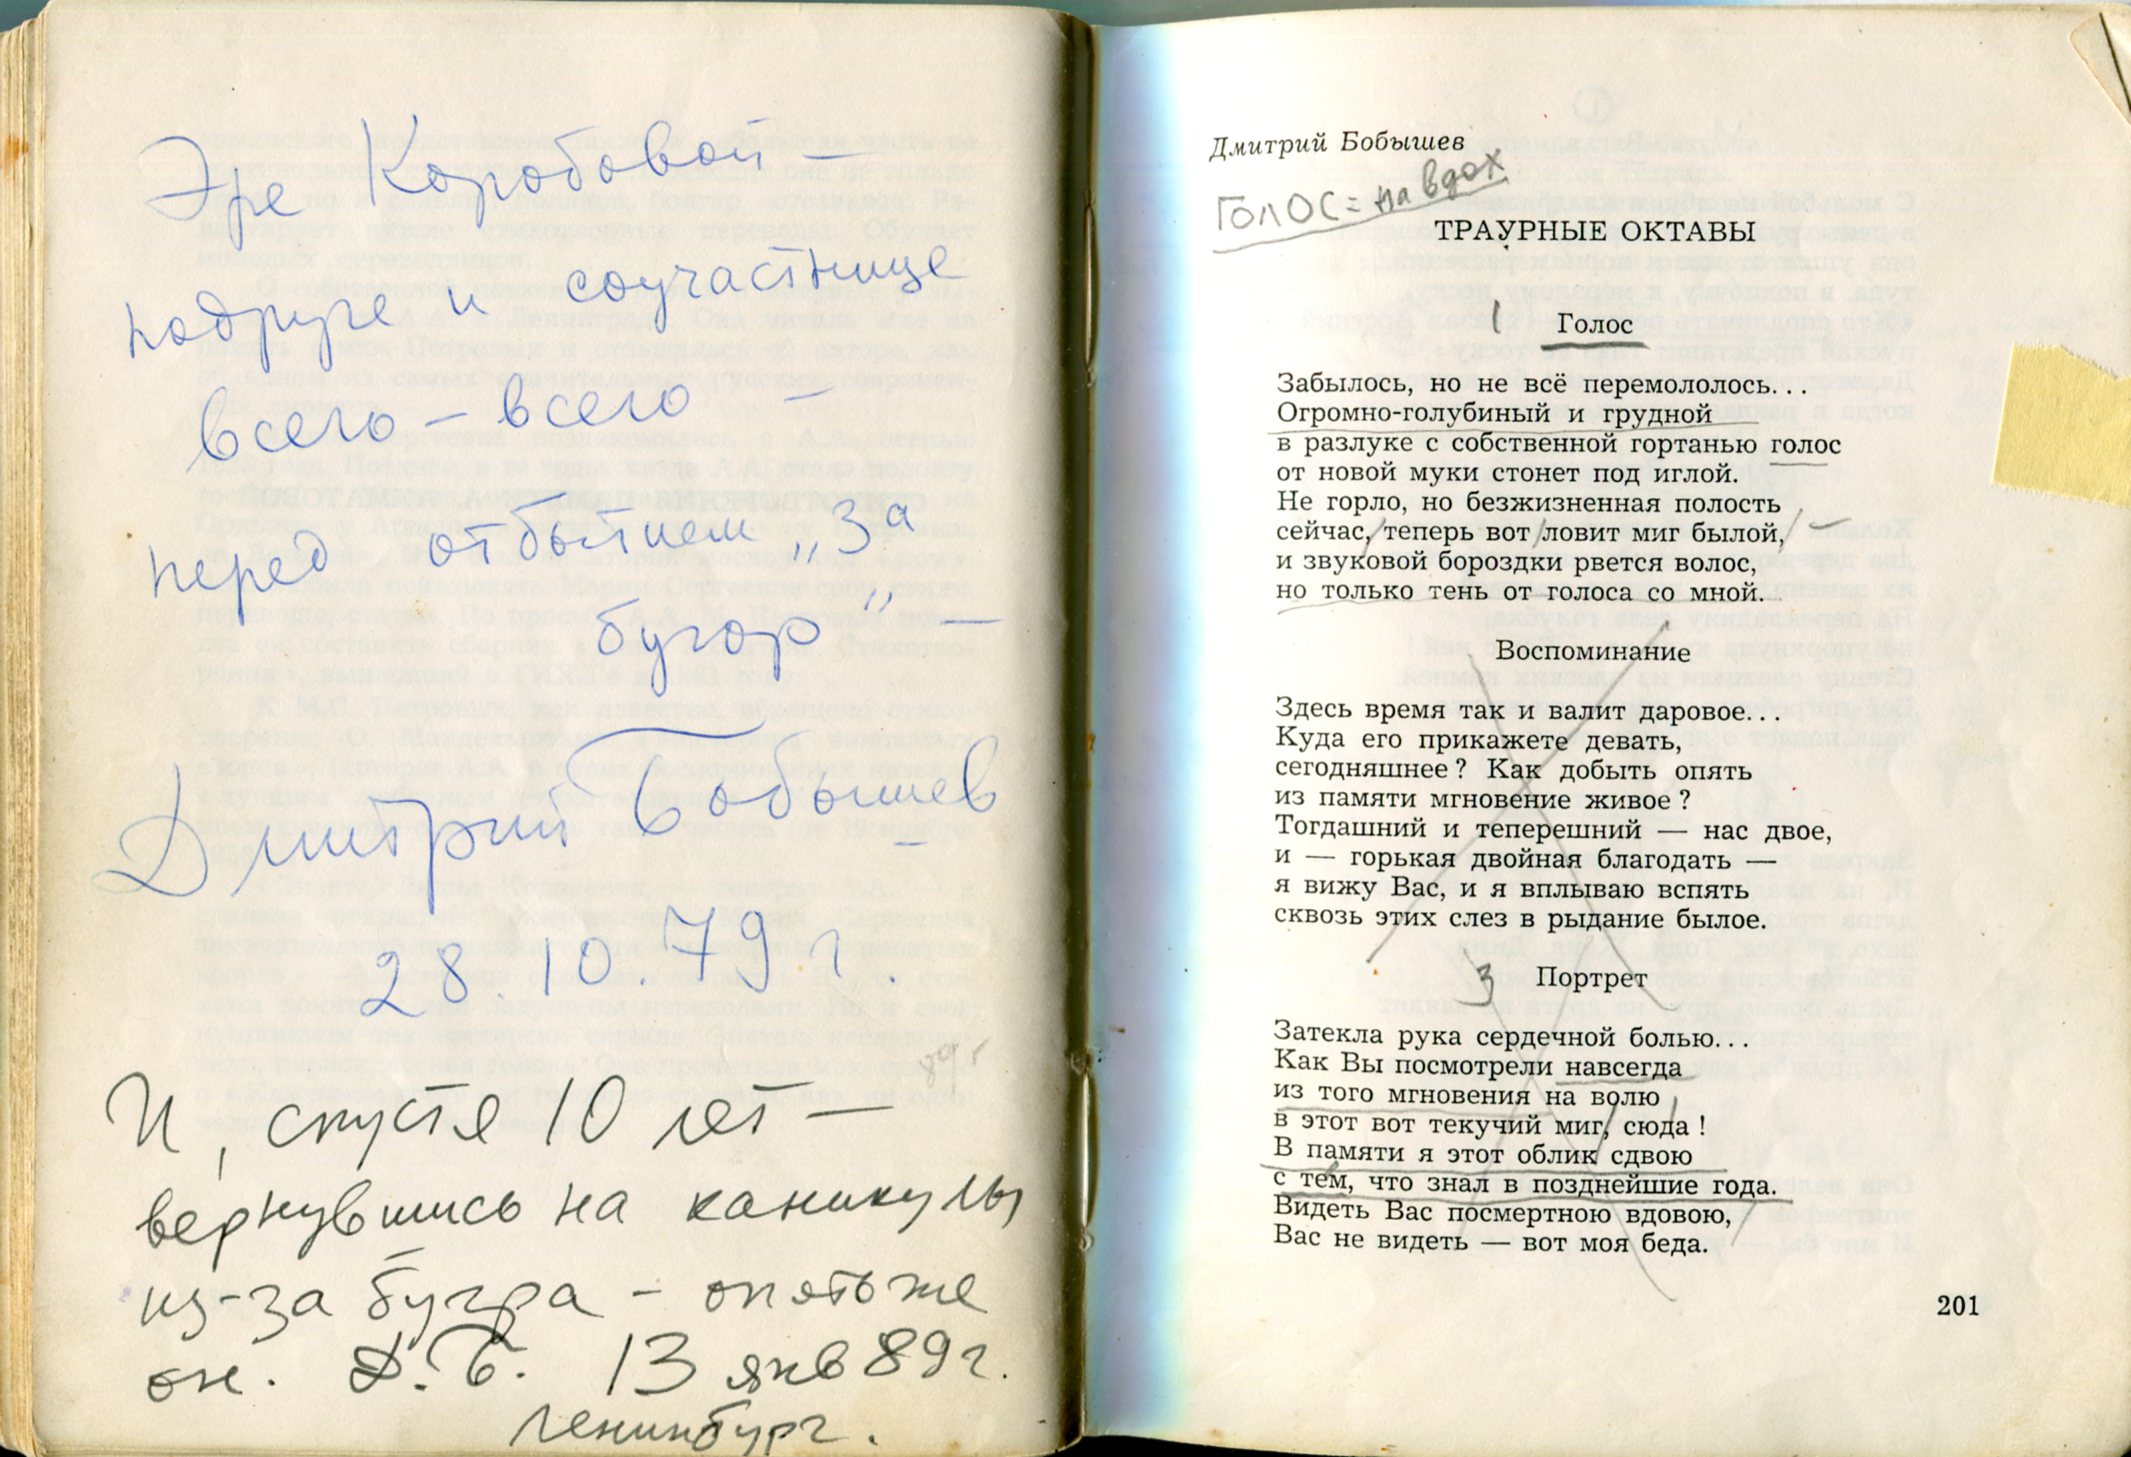 Эре Коробовой —
подруге и соучастнице
всего – всего –
перед отбытием „За
бугор" —
Дмитрий Бобышев
28.10.79 г.
89 г
И, спустя 10 лет —
вернувшись на каникулы
из-за бугра – опять же
он. Д.Б. 13 янв 89 г.
Ленинбург.
Дмитрий Бобышев
ГОЛОС = на вдох
ТРАУРНЫЕ ОКТАВЫ
1 Голос
Забылось, но не всё перемололось...
Огромно-голубиный и грудной
в разлуке с собственной гортанью голос
от новой муки стонет под иглой.
Не горло, но безжизненная полость
сейчас, теперь вот ловит миг былой,
и звуковой бороздки рвется волос,
но только тень от голоса со мной.
Воспоминание
Здесь время так и валит даровое...
Куда его прикажете девать,
сегодняшнее? Как добыть опять
из памяти мгновение живое?
Тогдашний и теперешний — нас двое,
и — горькая двойная благодать —
я вижу Вас, и я вплываю вспять
сквозь этих слез в рыдание былое.
3 Портрет
Затекла рука сердечной болью...
Как Вы посмотрели навсегда
из того мгновения на волю
в этот вот текучий миг, сюда!
В памяти я этот облик сдвою
с тем, что знал в позднейшие года.
Видеть Вас посмертною вдовою,
Вас не видеть — вот моя беда.
201